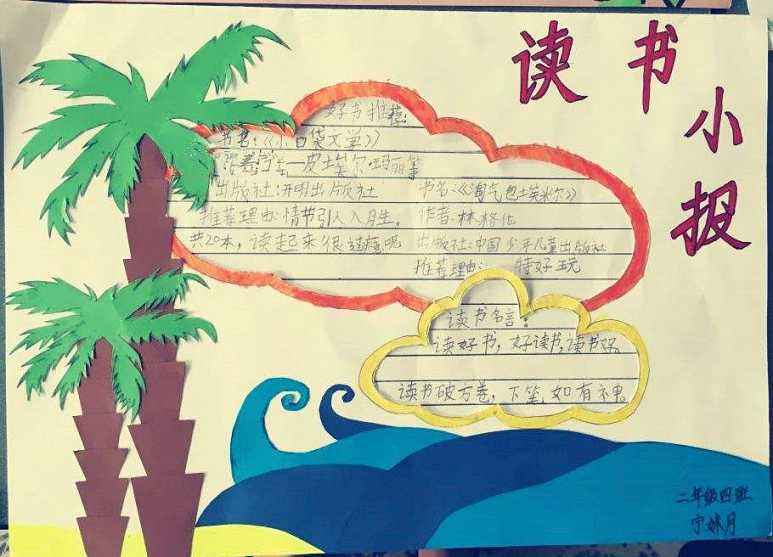 读书小报
好书推荐:
书名:《小口袋大学》
皮埃尔·玛丽等
出版社:开明出版社
推荐理由:情节引人入胜,
共20本,读起来很过瘾呢
书名:《淘气包埃米尔》
作者:林格伦
出版社:中国少年儿童出版社
推荐理由: 特好玩
读书名言:
读好书,好读书,读书好
读书破万卷,下笔如有神
二年级四班